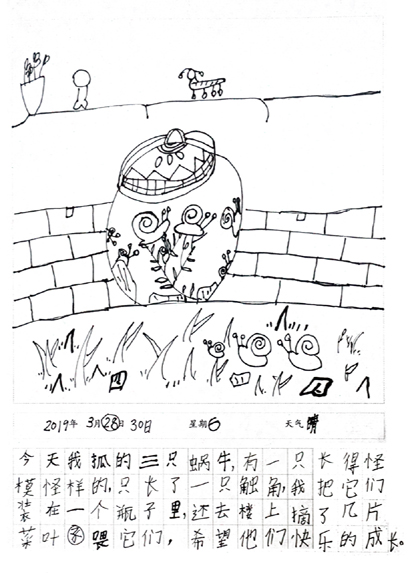 2019年 3月28日 30日 星期6 天气 晴
今天我抓的三只蜗牛,有一只长得怪
模怪样的,只长了一只触角,我把它们
装在一个瓶子里,还去楼上摘了几片
菜叶子喂它们,希望他们快乐的成长。